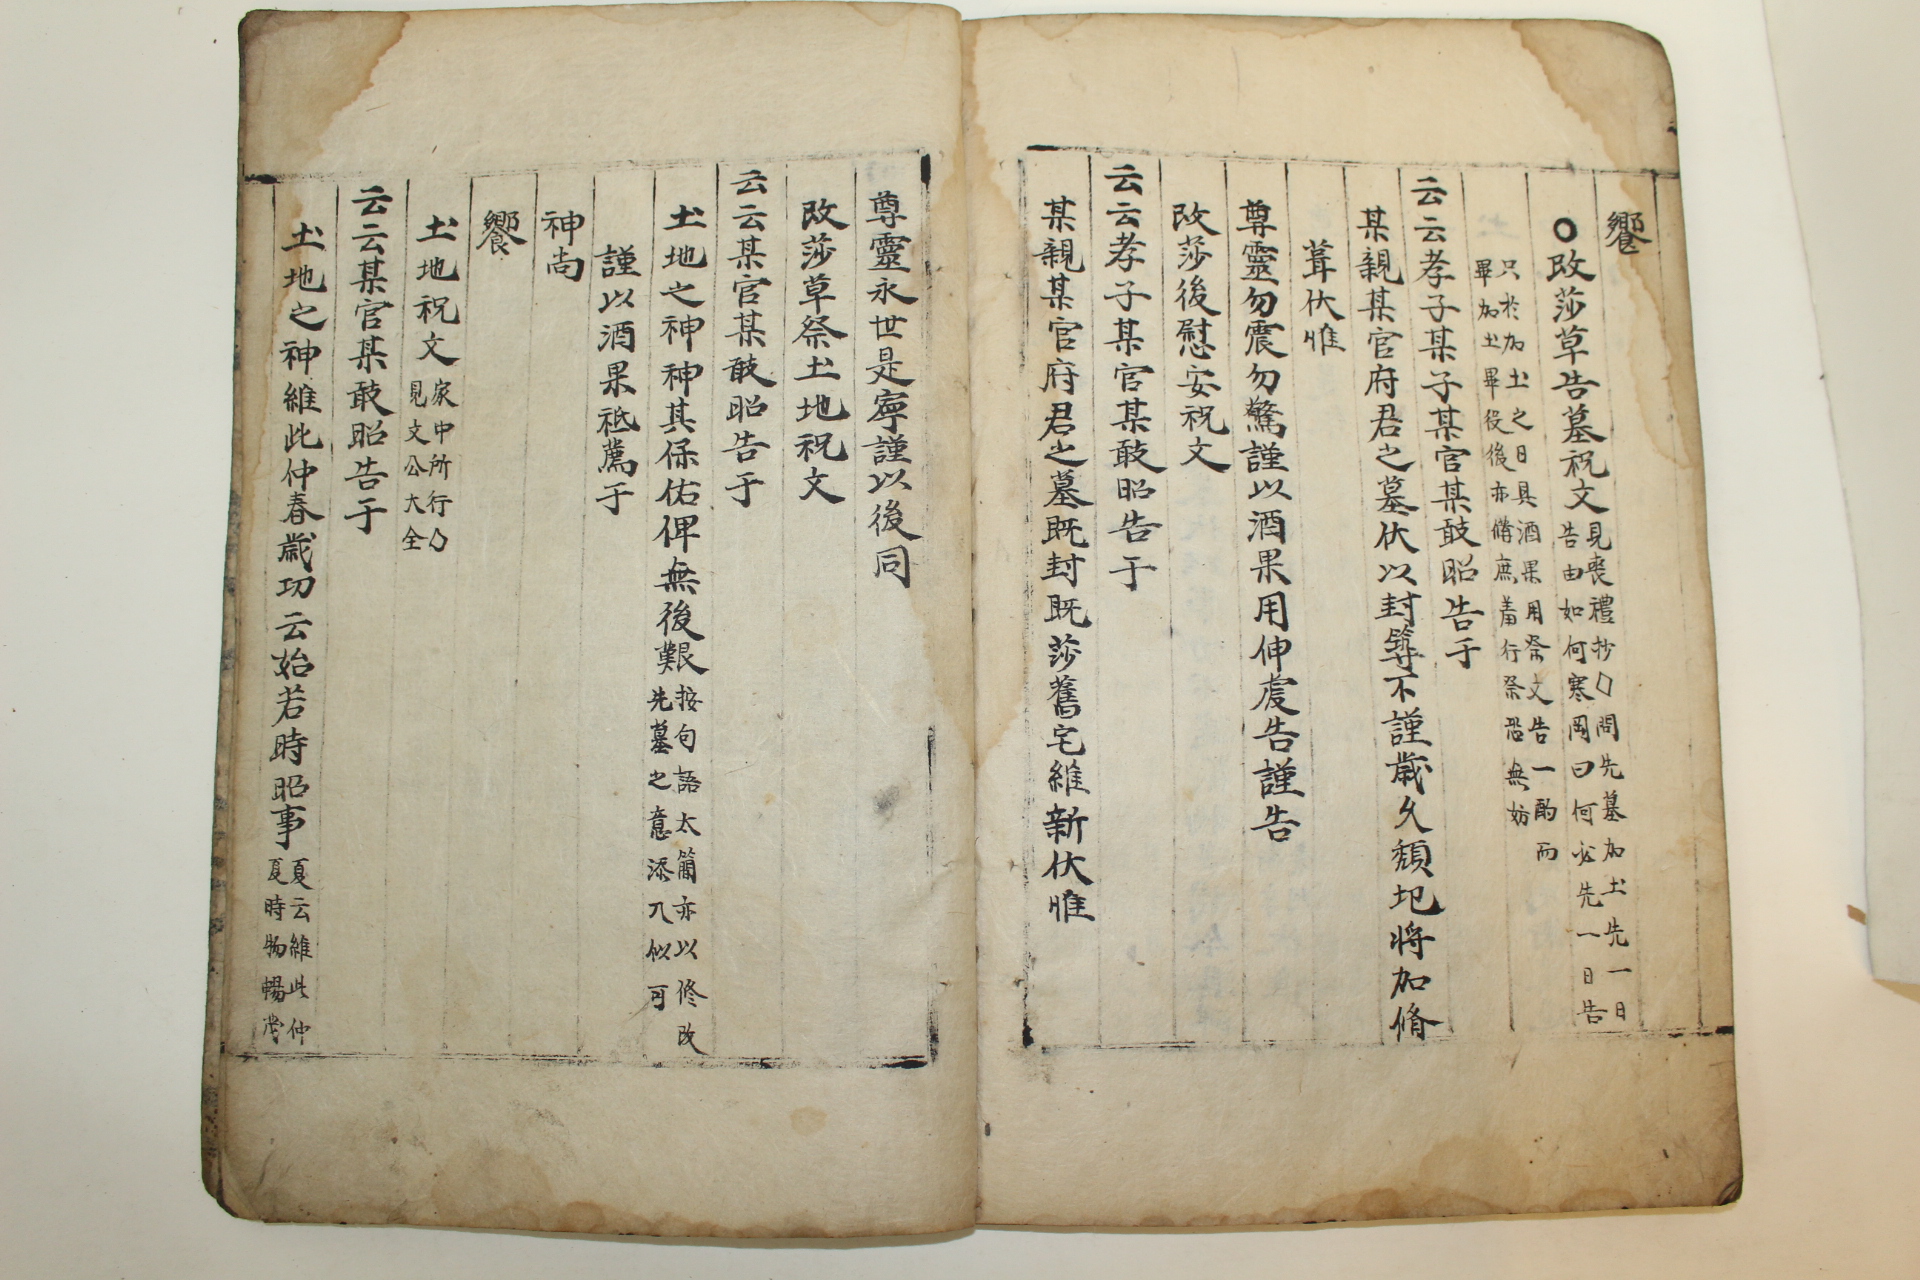 饗
○改莎草告墓祝文 見喪禮抄○問先墓加土先一日
告由如何寒岡曰何必先一日告
只於加土之日具酒果用祭文告一酌而
畢加土畢役後亦備庶羞行祭恐無妨
云云孝子某子某官某敢昭告于
某親某官府君之墓伏以封築不謹歲久頹圮將加脩
葺伏惟
尊靈勿震勿驚謹以酒果用伸虔告謹告
改莎後慰安祝文
云云孝子某官某敢昭告于
某親某官府君之墓既封既莎舊宅維新伏惟
尊靈永世是寧謹以後同
改莎草祭土地祝文
云云某官某敢昭告于
土地之神神其保佑俾無後艱 按句語太簡亦以修改
先墓之意添入似可
謹以酒果祗薦于
神尚
饗
土地祝文 家中所行○
見文公大全
云云某官某敢昭告于
土地之神維此仲春歲功云始若時昭事 夏云維此仲
夏時物暢茂